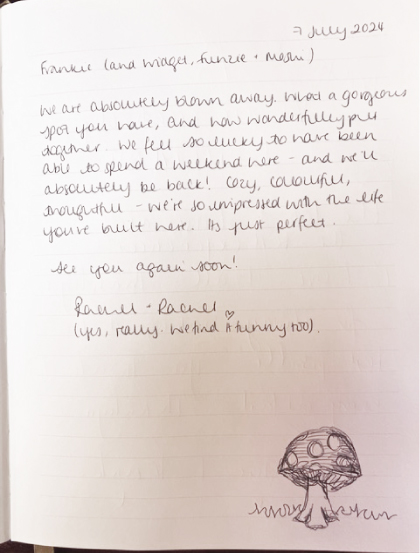 7 July 2024
Frankie (and Maget, Funzie + Meru)
We are absolutely blown away. What a gorgeous
spot you have, and how wonderfully put
together. We feel so lucky to have been
able to spend a weekend here - and we'll
absolutely be back! Cozy, colourful,
thoughtful - we're so impressed with the life
you've built here. Its just perfect.
See you again soon!
Rachel + Rachel
(yes, really. We find it funny too).